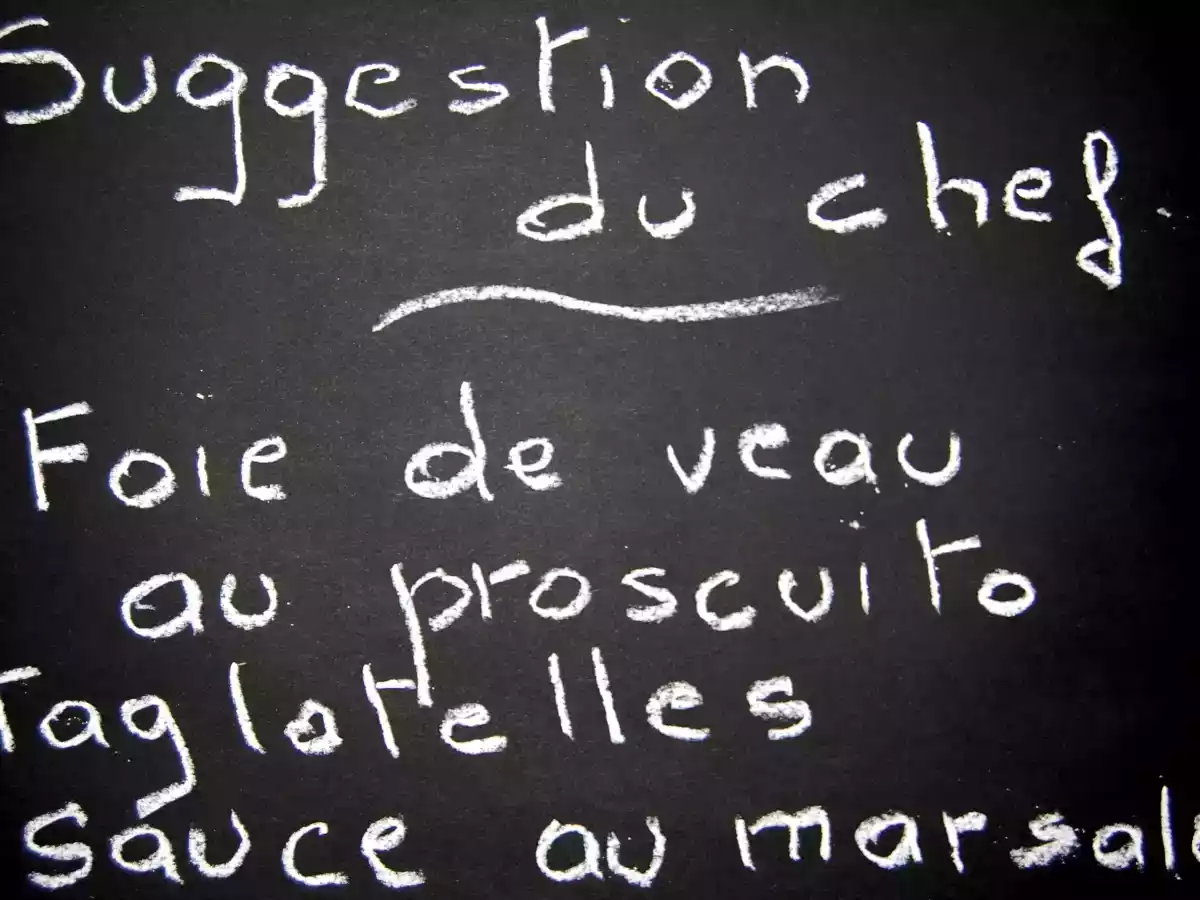 Suggestion
du chef
Foie de veau
au proscuito
Taglotelles
sauce au marsala